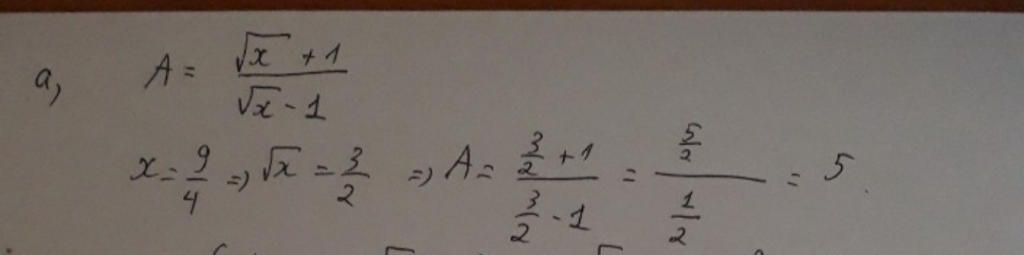 a, A = \frac{\sqrt{x} + 1}{\sqrt{x} - 1}
x = \frac{9}{4} => \sqrt{x} = \frac{3}{2} => A = \frac{\frac{3}{2} + 1}{\frac{3}{2} - 1} = \frac{\frac{5}{2}}{\frac{1}{2}} = 5.